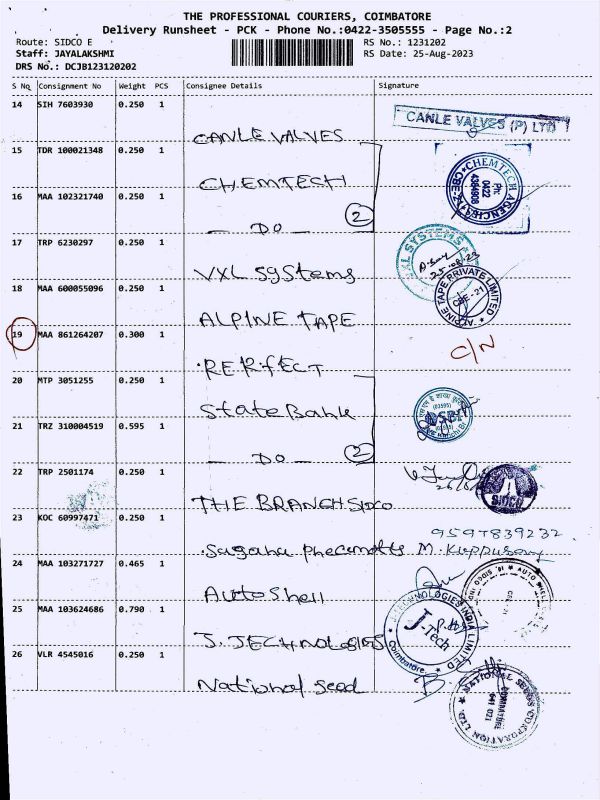 THE PROFESSIONAL COURIERS, COIMBATORE
Delivery Runsheet - PCK - Phone No.:0422-3505555 - Page No.:2
Route: SIDCO E
Staff: JAYALAKSHMI
DRS No.: DCJB123120202
RS No.: 1231202
RS Date: 25-Aug-2023
S No Consignment No Weight PCS Consignee Details Signature
14 SIH 7603930 0.250 1
CANLE VALVES
CANLE VALVES (P) LTD
15 TDR 100021348 0.250 1
CHEMTECH
CHEMTECH AGENCIES
Ph: 0422
16 MAA 102321740 0.250 1
— DO — 2
17 TRP 6230297 0.250 1
VXL Systems
VXL SYSTEMS
18 MAA 600055096 0.250 1
ALPINE TAPE
ALPINE TAPE PRIVATE LIMITED
CBE - 21
19 MAA 861264207 0.300 1
PERFECT
C/N
20 MTP 3051255 0.250 1
State Bank
21 TRZ 310004519 0.595 1
— DO — 2
22 TRP 2501174 0.250 1
THE BRANCH SIDCO
SIDCO
23 KOC 60997471 0.250 1
9597839232
M. Kuppusamy
24 MAA 103271727 0.465 1
Auto Shell
25 MAA 103624686 0.790 1
J. TECHNOLOGIES
J.TECHNOLOGIES INDIA LIMITED
J-Tech
Coimbatore
26 VLR 4545016 0.250 1
National Seed
NATIONAL SEEDS CORPORATION LTD.
COIMBATORE
641 021